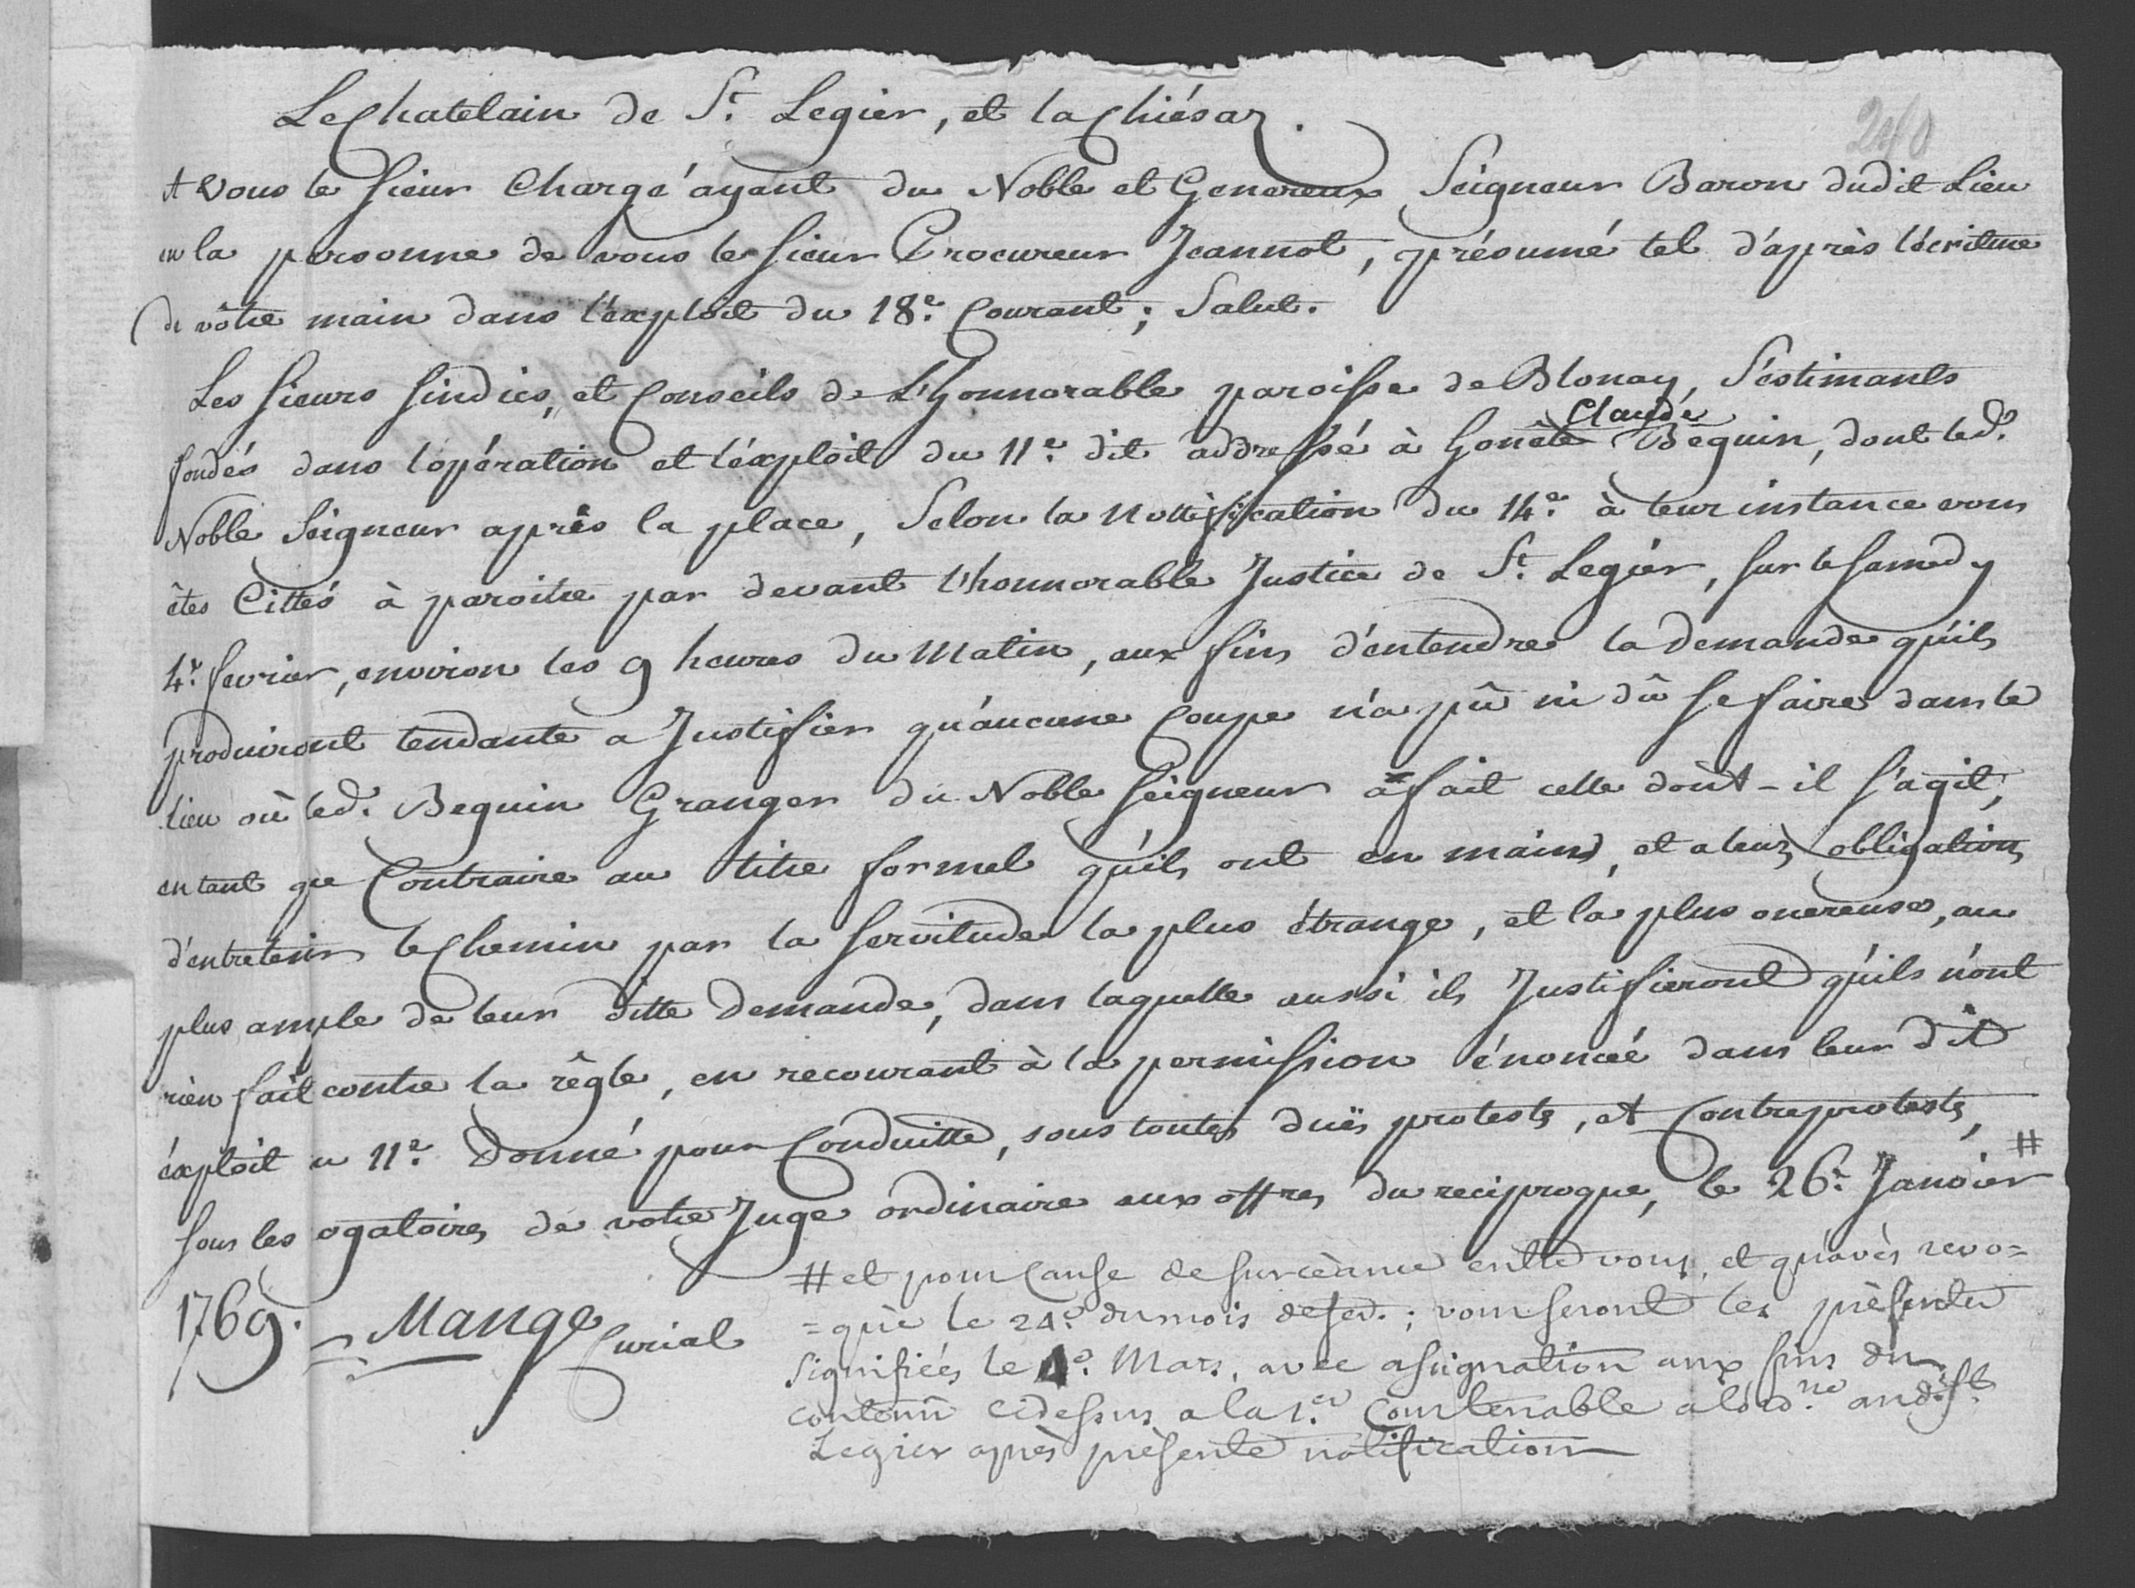 240
Le Chatelain de St. Legier, et la Chiésaz.
A vous le sieur Chargé ayant du Noble et Genereux Seigneur Baron dudit Lieu
en la personne de vous le sieur Procureur Jeannot, présumé tel d'après l'écriture
de vôtre main dans l'éxploit du 18e. Courant; Salut.
Les sieurs sindics, et Conseils de L'honnorable paroisse de Blonay, S'éstimants
Claude
fondés dans l'opération et l'éxploit du 11e. dit addressé à honête Béguin, dont led.
Noble Seigneur après la place, Selon la Nottification du 14e. à leur instance vous
êtes Cittés à paroitre par devant l'honnorable Justice de St. Legier, sur le samedy
4e. fevrier, environ les 9 heures du Matin, aux fins d'éntendre la demande qu'ils
produiront tendante a Justifier qu'aucune Coupe n'a pû ni dû se faire dans le
lieu où led. Beguin Granger du Noble Seigneur a fait celle dont-il s'agit,
en tant que Contraire au titre formel qu'ils ont en mains, et a leurs obligations
d'entretenir le Chemin par la servitude la plus étrange, et la plus onereuse, au
plus ample de leur ditte demande, dans laquelle aussi ils Justifieront qu'ils n'ont
rien fait contre la règle, en recourant à la permission énoncée dans leur dit
éxploit u 11e. Donné pour Conduitte, sous toutes duës protests, et Contreprotests,
sous les ogatoires de votre Juge ordinaire aux offres du reciproque, le 26e. Janvier #
1769. Mange Curial
# et pour Cause de surcéance entre vous, et qu'avés revo=
=què le 24e. du mois de fev.; vous seront les présentes
signifiées le 4e. Mars, avec assignation aux fins du
contenü cidessus a la 1.re Cour tenable a lord.re aud. St.
Legier après présente notification